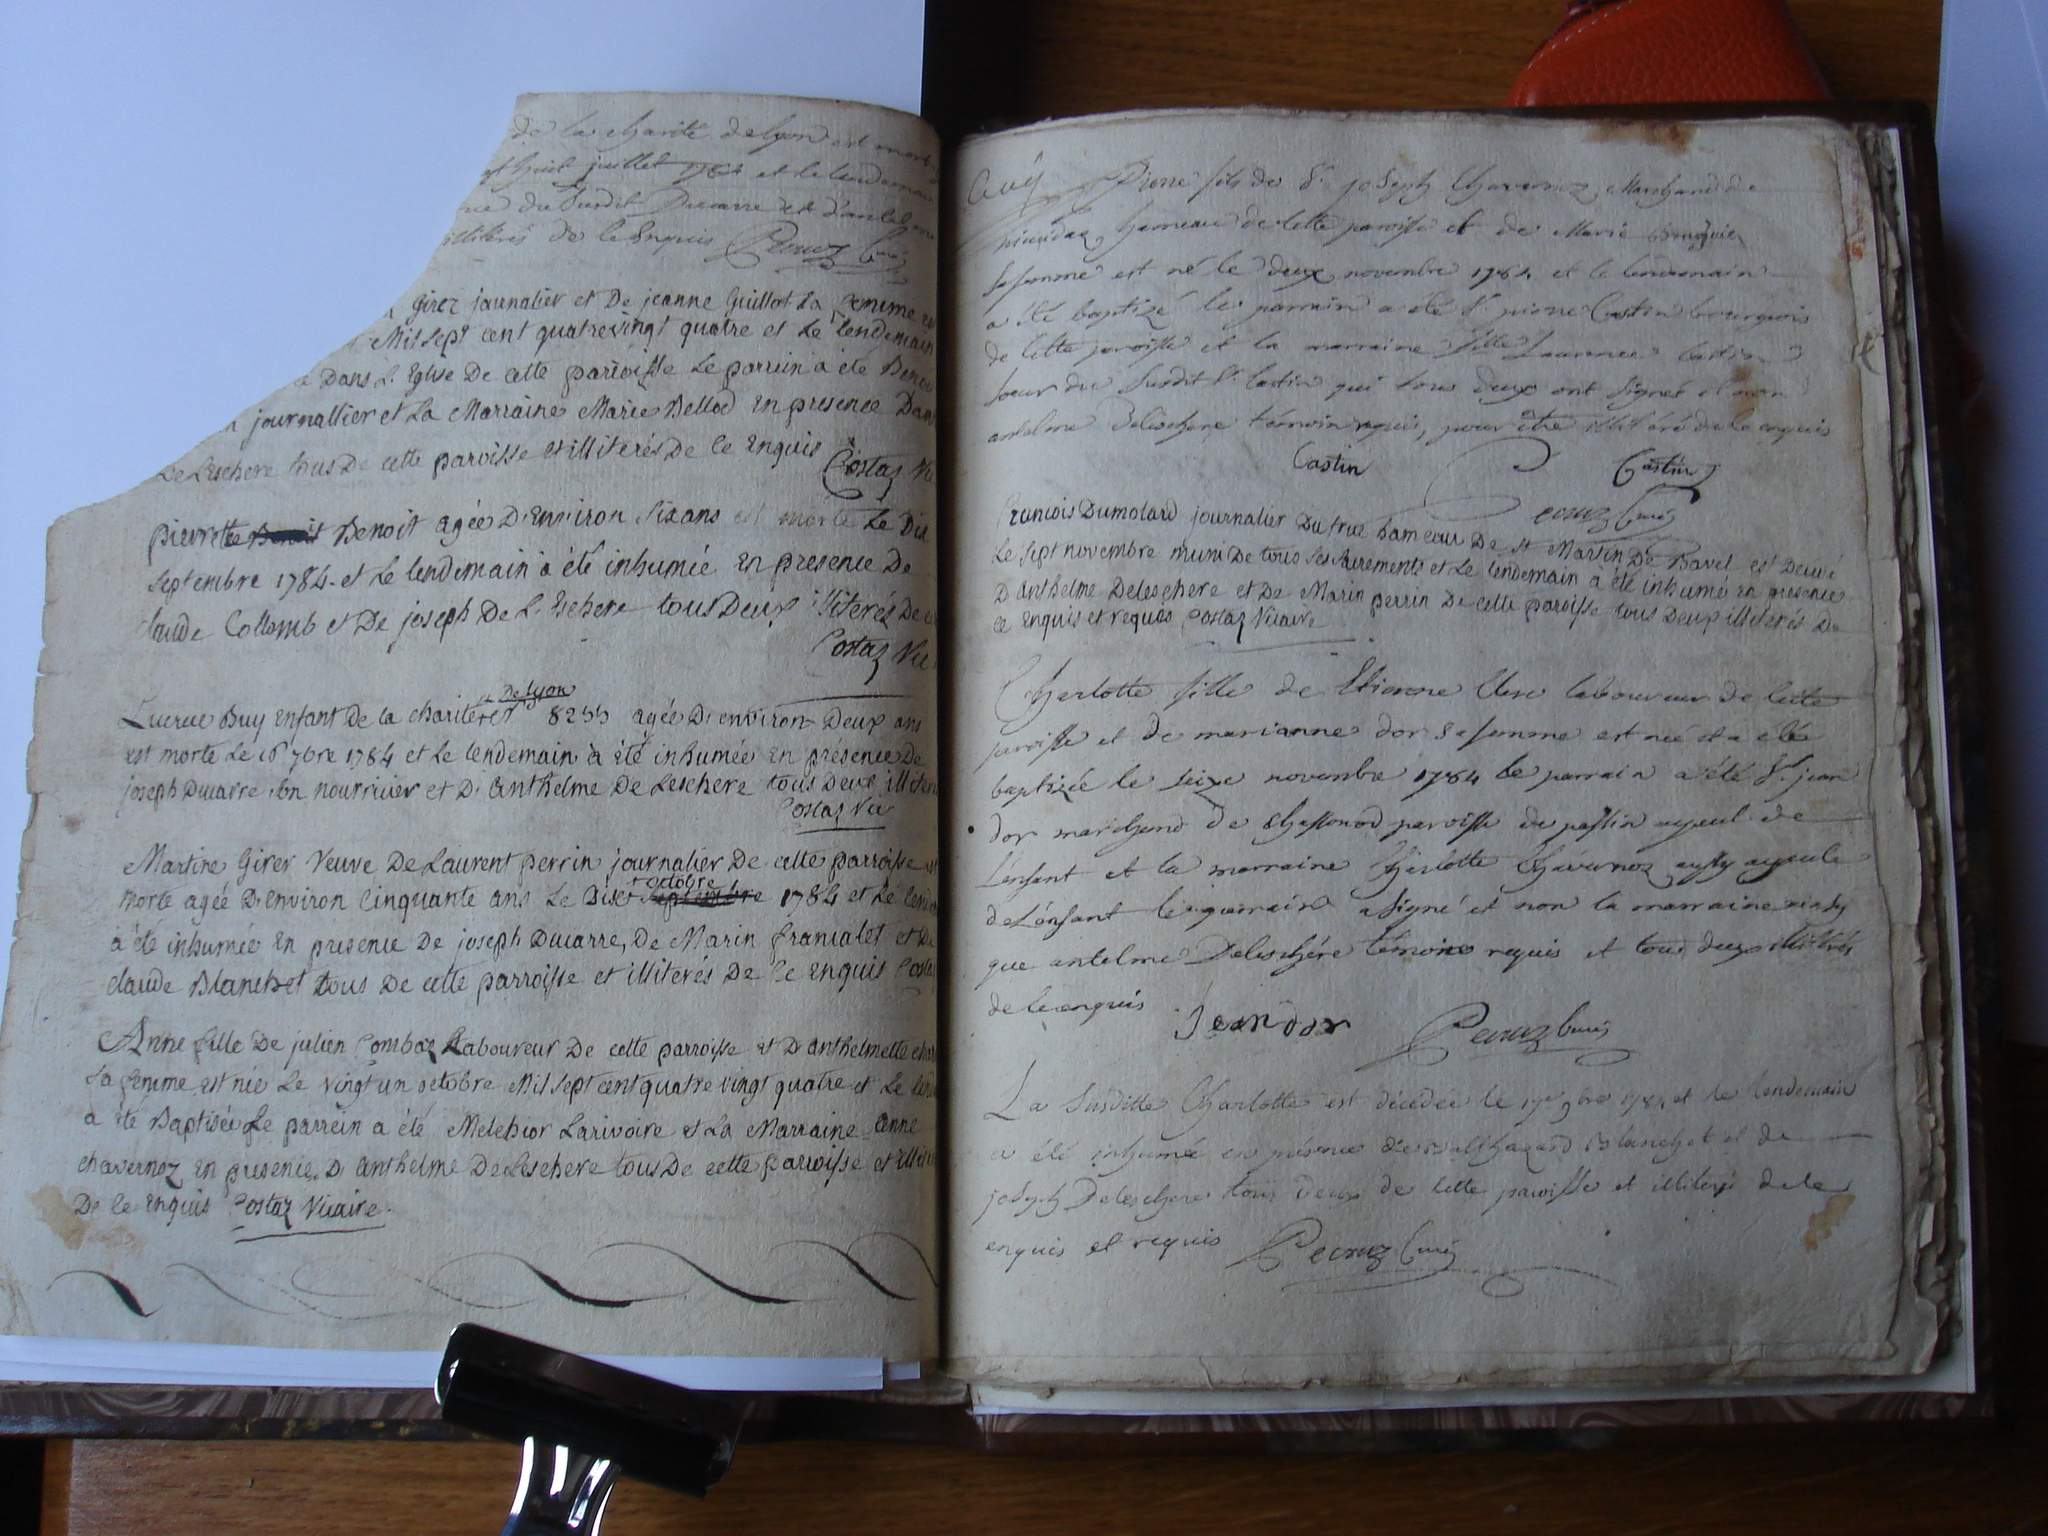 de la charité de lyon est mort
huit juillet 1784 et le lendemain
du susdit Ducarre et d'antelme
illiterés de ce enquis Pecruz Curé
Girer journalier et De jeanne Guillot sa femme
Mil sept cent quatrevingt quatre et Le lendemain
Dans L'Eglise De cette parroisse Le parrein a été Benoit
journallier et La Marraine Marie Bellod En presence
De Leschere tous De cette parroisse et illiterés De ce Enquis Costaz Vic
pierrette Benoit agée D'Environ Six ans est morte Le Dix
septembre 1784. et Le lendemain a été inhumée En presence De
claude Collomb et De joseph De L'Eschere tous Deux illiterés De
Costaz Vic
De Lyon
Lucrece Buy Enfant De la charité 8255 agée D'environ Deux ans
est morte Le 16 7bre 1784 et Le lendemain a été inhumée En presence De
joseph Ducarre son nourricier et D'Anthelme De Leschere tous Deux
Costaz Vic
Martine Girer Veuve De Laurent perrin journalier De cette parroisse
octobre
morte agée D'Environ Cinquante ans Le Dix septembre 1784 et Le
a été inhumée En presence De joseph Ducarre, De Marin francalet et De
claude Blanchet tous De cette parroisse et illiterés De ce Enquis Costaz
Anne fille De julien Combaz Laboureur De cette parroisse et D'anthelmette
sa femme est née Le vingt un octobre Mil sept cent quatre vingt quatre et Le
a été Baptisée Le parrein a été Melchior Larivoire et La Marraine Anne
chavernoz En presence D'anthelme De Leschere tous De cette parroisse et
De ce Enquis Costaz Vicaire.
Pierre fils de Sr. joseph Chavernoz, Marchand de
hameau de cette paroisse et de Marie
sa femme est né le deux novembre 1784 et le lendemain
a été baptizé le parrain a été Sr. pierre Castin bourgeois
de cette paroisse et la marraine Laurence Castin
soeur du susdit Sr. Castin qui tous deux ont signés et non
antelme Deleschere témoin requis, pour être illitéré de ce enquis
Castin Castin
Pecruz Curé
francois Dumolard journalier Du truc hameau De st Martin De Bavel est Decedé
Le sept novembre muni De tous ses sacrements et Le lendemain a été inhumé En presence
D'Anthelme Deleschere et De Marin perrin De cette paroisse tous Deux illiterés De
ce Enquis et requis Costaz Vicaire
Charlotte fille de Etienne Clerc laboureur de cette
paroisse et de marianne dor sa femme est née et a été
baptizée le seize novembre 1784 le parrain a été Sr. jean
dor marchand de Chassonod paroisse de passin ayeul de
L'enfant et la marraine Charlotte Chavernoz aussy ayeule
de L'enfant le parrain a signé et non la marraine
que antelme Deleschére témoin requis et tous deux illitérés
de ce enquis Jean dor Pecruz Curé
La Susditte Charlotte est décédée le 17e 9bre 1784 et le lendemain
a été inhumée en présence de Balthazard Blanchet et de
joseph Deleschere tous deux de cette paroisse et illiterés de ce
enquis et requis Pecruz Curé